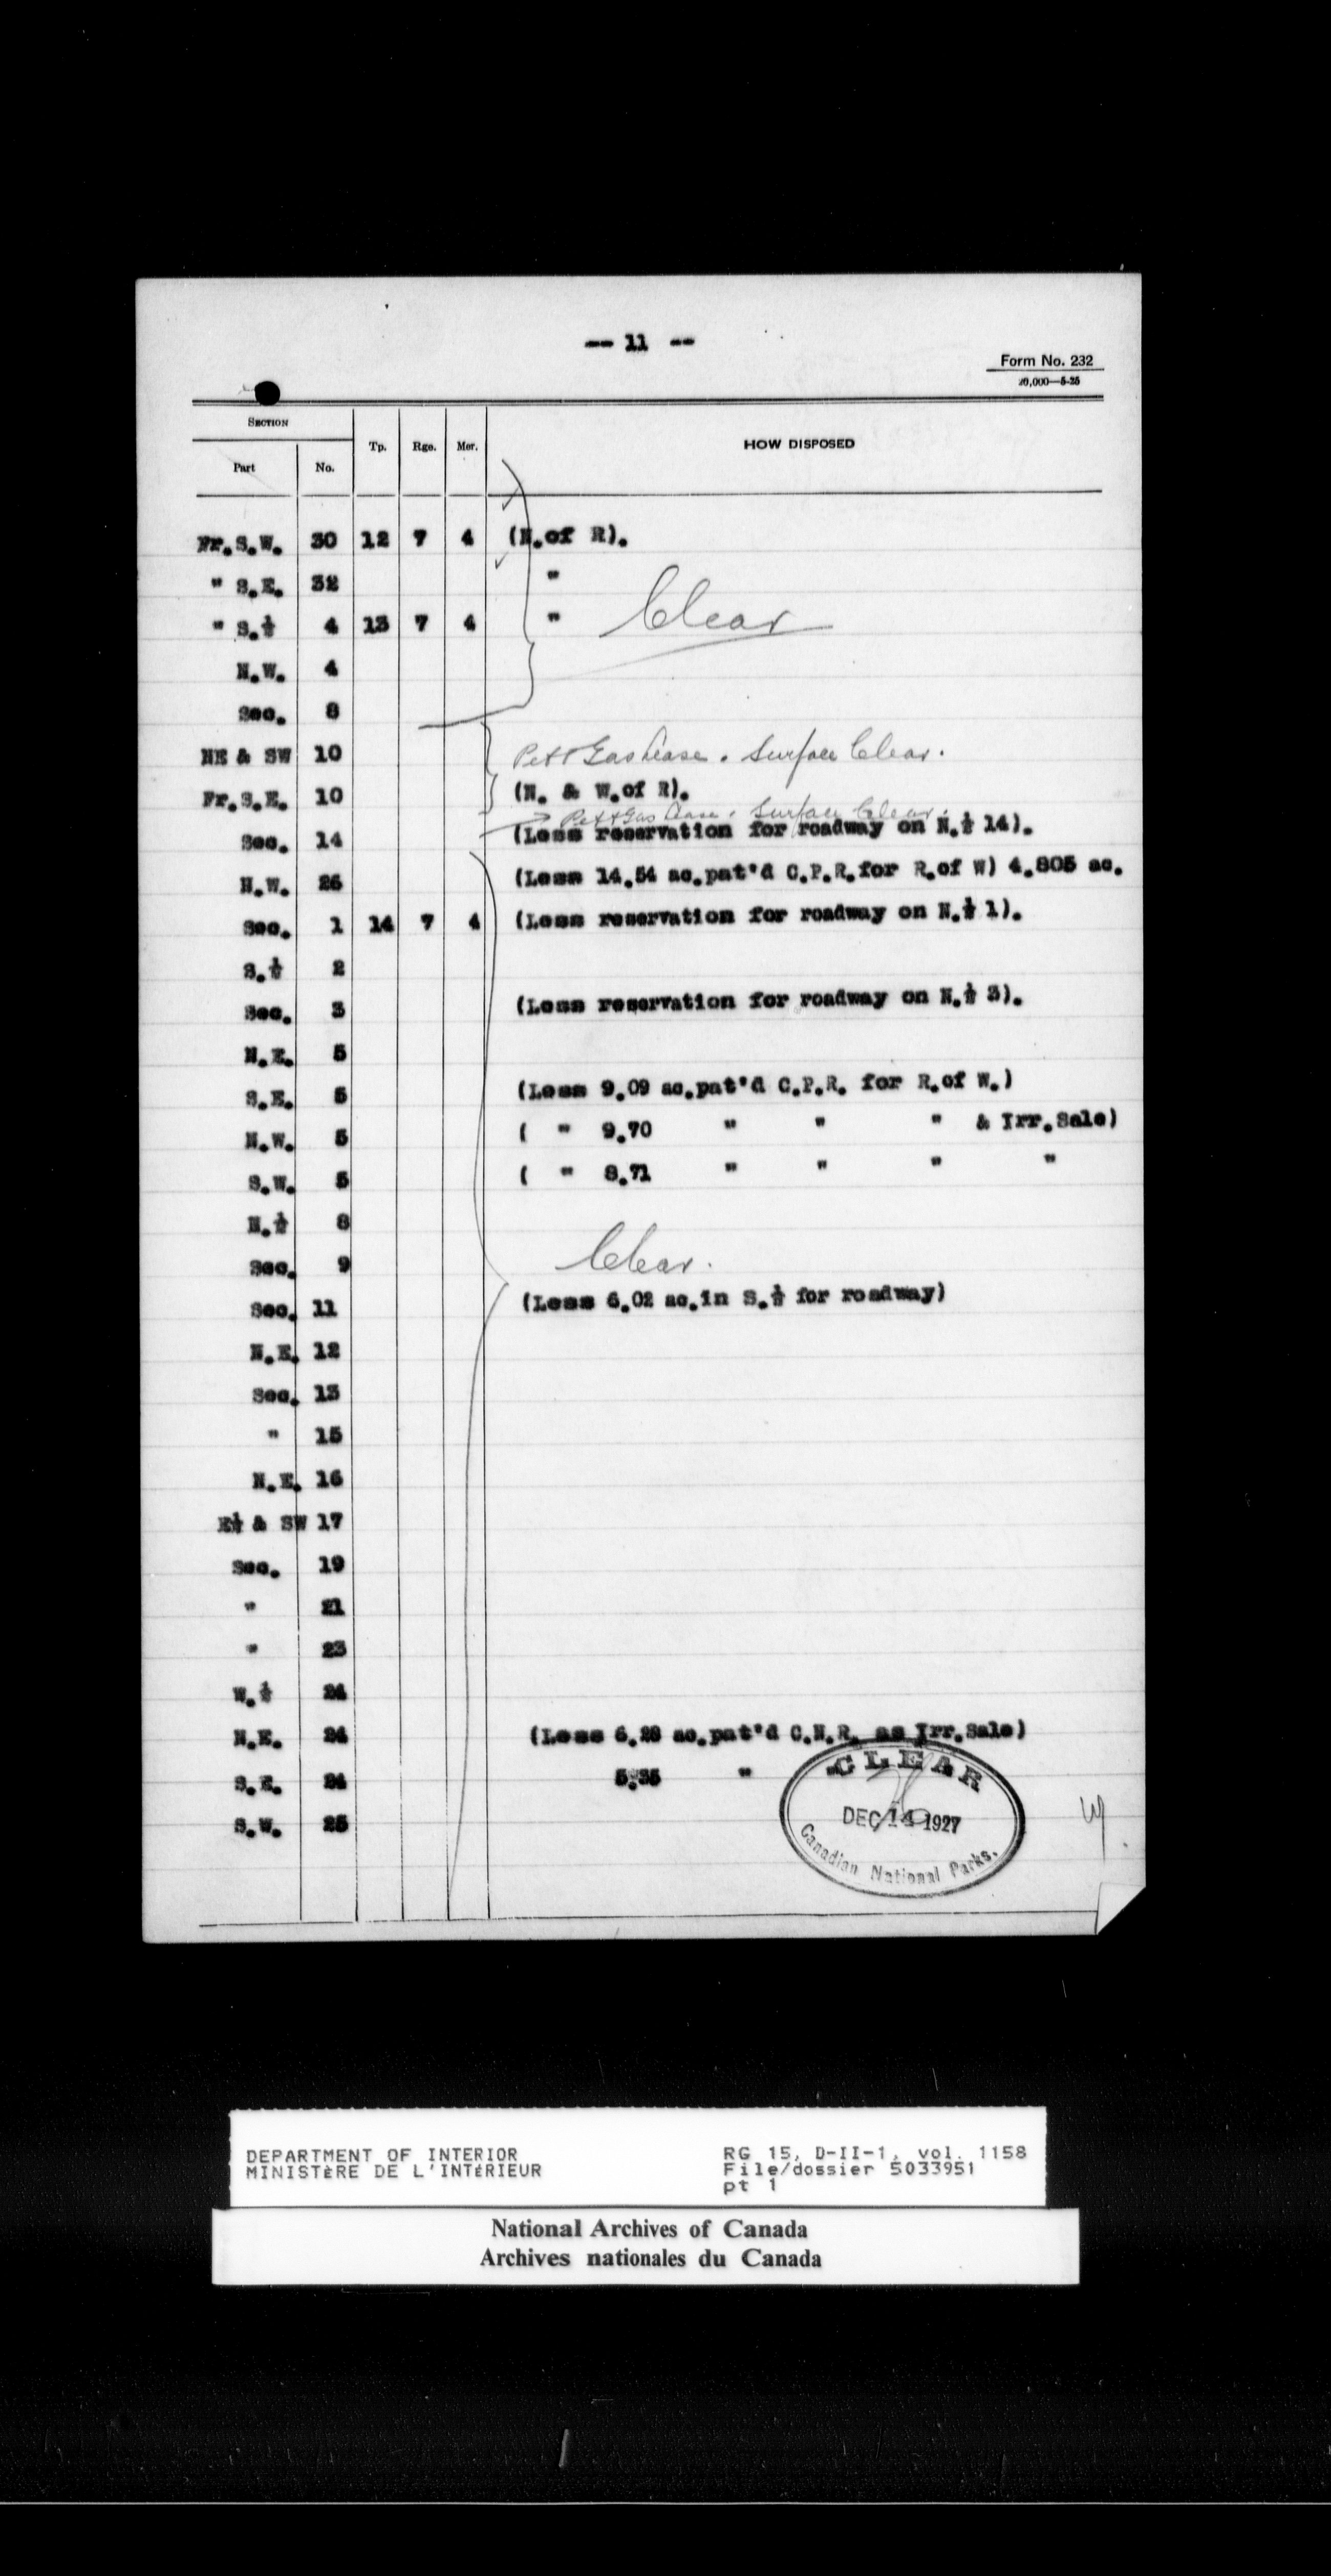 -- 11 --
Form No. 232
20,000—5-25
SECTION
Part No. Tp. Rge. Mer. HOW DISPOSED
Fr.S.W. 30 12 7 4 (N.of R).
" S.E. 32 "
" S.½ 4 13 7 4 " Clear
N.W. 4
Sec. 8
NE & SW 10 Pet & Gas Lease. Surface Clear.
Fr.S.E. 10 (N. & W.of R).
Pet & Gas Lease. Surface Clear.
Sec. 14 (Less reservation for roadway on N.½ 14).
N.W. 26 (Less 14.54 ac.pat'd C.P.R.for R.of W) 4.805 ac.
Sec. 1 14 7 4 (Less reservation for roadway on N.½ 1).
S.½ 2
Sec. 3 (Less reservation for roadway on N.½ 3).
N.E. 5
S.E. 5 (Less 9.09 ac.pat'd C.P.R. for R.of W.)
N.W. 5 ( " 9.70 " " " & Irr.Sale)
S.W. 5 ( " 8.71 " " " "
N.½ 8
Sec. 9 Clear.
Sec. 11 (Less 6.02 ac.in S.½ for roadway)
N.E. 12
Sec. 13
" 15
N.E. 16
E½ & SW 17
Sec. 19
" 21
" 23
W.½ 24
N.E. 24 (Less 6.28 ac.pat'd C.N.R. as Irr.Sale)
S.E. 24 5.35 "
S.W. 25
CLEAR
DEC 14 1927
Canadian National Parks.
DEPARTMENT OF INTERIOR
MINISTÈRE DE L'INTÉRIEUR
RG 15, D-II-1, vol. 1158
File/dossier 5033951
pt 1
National Archives of Canada
Archives nationales du Canada